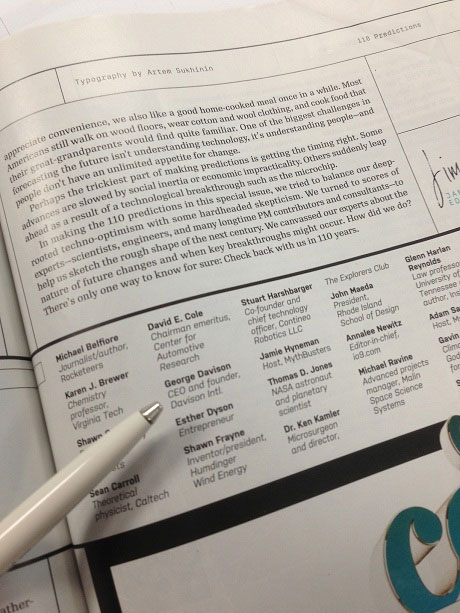 Typography by Artem Sukhinin
110 Predictions
appreciate convenience, we also like a good home-cooked meal once in a while. Most
Americans still walk on wood floors, wear cotton and wool clothing, and cook food that
their great-grandparents would find quite familiar. One of the biggest challenges in
forecasting the future isn't understanding technology, it's understanding people—and
people don't have an unlimited appetite for change.
Perhaps the trickiest part of making predictions is getting the timing right. Some
advances are slowed by social inertia or economic impracticality. Others suddenly leap
ahead as a result of a technological breakthrough such as the microchip.
In making the 110 predictions in this special issue, we tried to balance our deep-
rooted techno-optimism with some hardheaded skepticism. We turned to scores of
experts—scientists, engineers, and many longtime PM contributors and consultants—to
help us sketch the rough shape of the next century. We canvassed our experts about the
nature of future changes and when key breakthroughs might occur. How did we do?
There's only one way to know for sure: Check back with us in 110 years.
Jim
Michael Belfiore
Journalist/author,
Rocketeers
Karen J. Brewer
Chemistry
professor,
Virginia Tech
Shawn
Sean Carroll
Theoretical
physicist, Caltech
David E. Cole
Chairman emeritus,
Center for
Automotive
Research
George Davison
CEO and founder,
Davison Intl.
Esther Dyson
Entrepreneur
Shawn Frayne
Inventor/president,
Humdinger
Wind Energy
Stuart Harshbarger
Co-founder and
chief technology
officer, Contineo
Robotics LLC
Jamie Hyneman
Host, MythBusters
Thomas D. Jones
NASA astronaut
and planetary
scientist
Dr. Ken Kamler
Microsurgeon
and director,
The Explorers Club
John Maeda
President,
Rhode Island
School of Design
Annalee Newitz
Editor-in-chief,
io9.com
Michael Ravine
Advanced projects
manager, Malin
Space Science
Systems
Glenn Harlan
Reynolds
Law professor
University of
Tennessee
author, Ins
Adam Sa
Host, M
Gavin